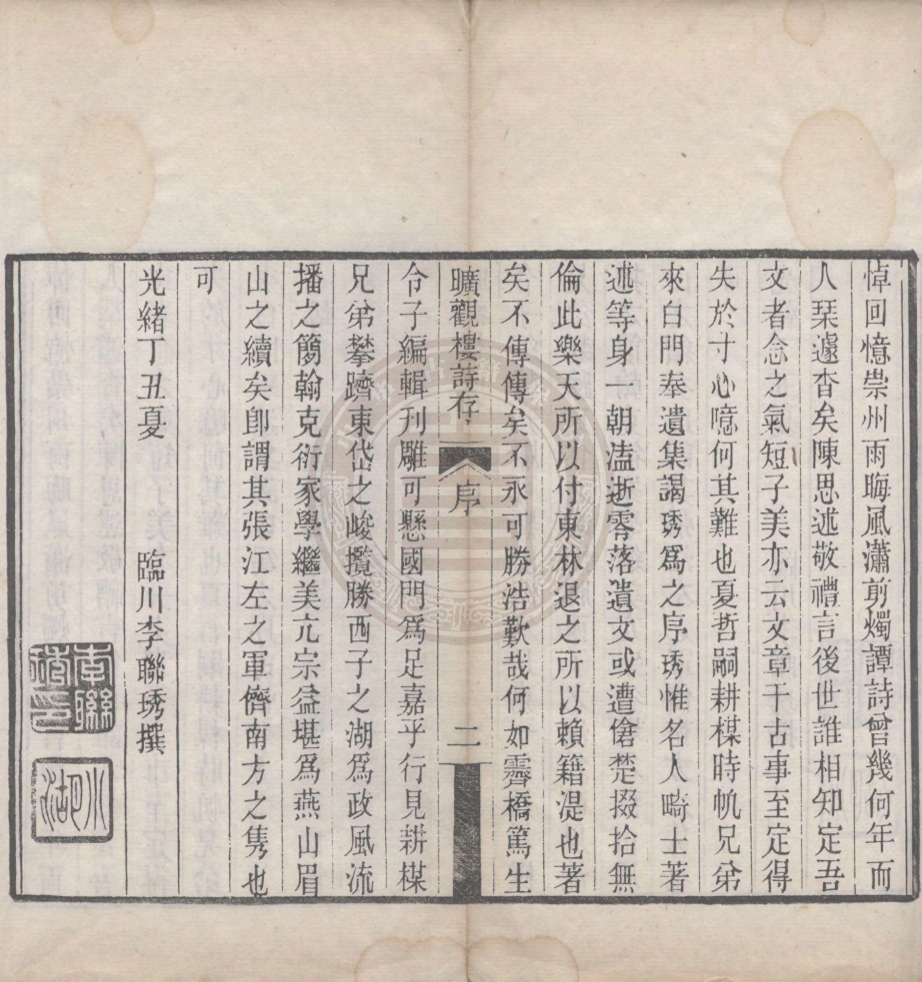 悼回憶崇州雨晦風瀟剪燭譚詩曾幾何年而
人琹遽杳矣陳思述敬禮言後世誰相知定吾
文者念之氣短子美亦云文章千古事至定得
失於寸心噫何其難也夏哲嗣耕楳時帆兄弟
來白門奉遺集謁琇爲之序琇惟名人畸士著
述等身一朝溘逝零落遺文或遭傖楚掇拾無
倫此樂天所以付東林退之所以賴籍湜也著
矣不傳傳矣不永可勝浩歎哉何如霽橋篤生
曠觀樓詩存
序
二
令子編輯刊雕可懸國門爲足嘉乎行見耕楳
兄弟攀躋東岱之峻攬勝西子之湖爲政風流
播之簡翰克衍家學繼美亢宗益堪爲燕山眉
山之續矣卽謂其張江左之軍儕南方之隽也
可
光緒丁丑夏
臨川李聯琇撰
李聯琇印
小湖